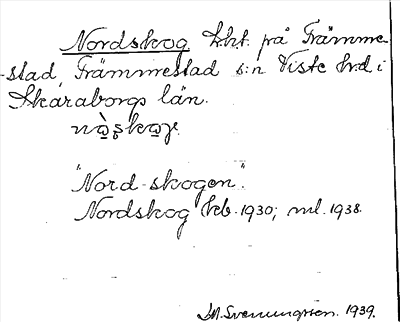 Nordskog lht. på Främme-
stad, Främmestad s:n Viste hrd i
Skaraborgs län.
"Nord-skogen".
Nordskog kb. 1930; ml. 1938.
M. Svenungsson. 1939.